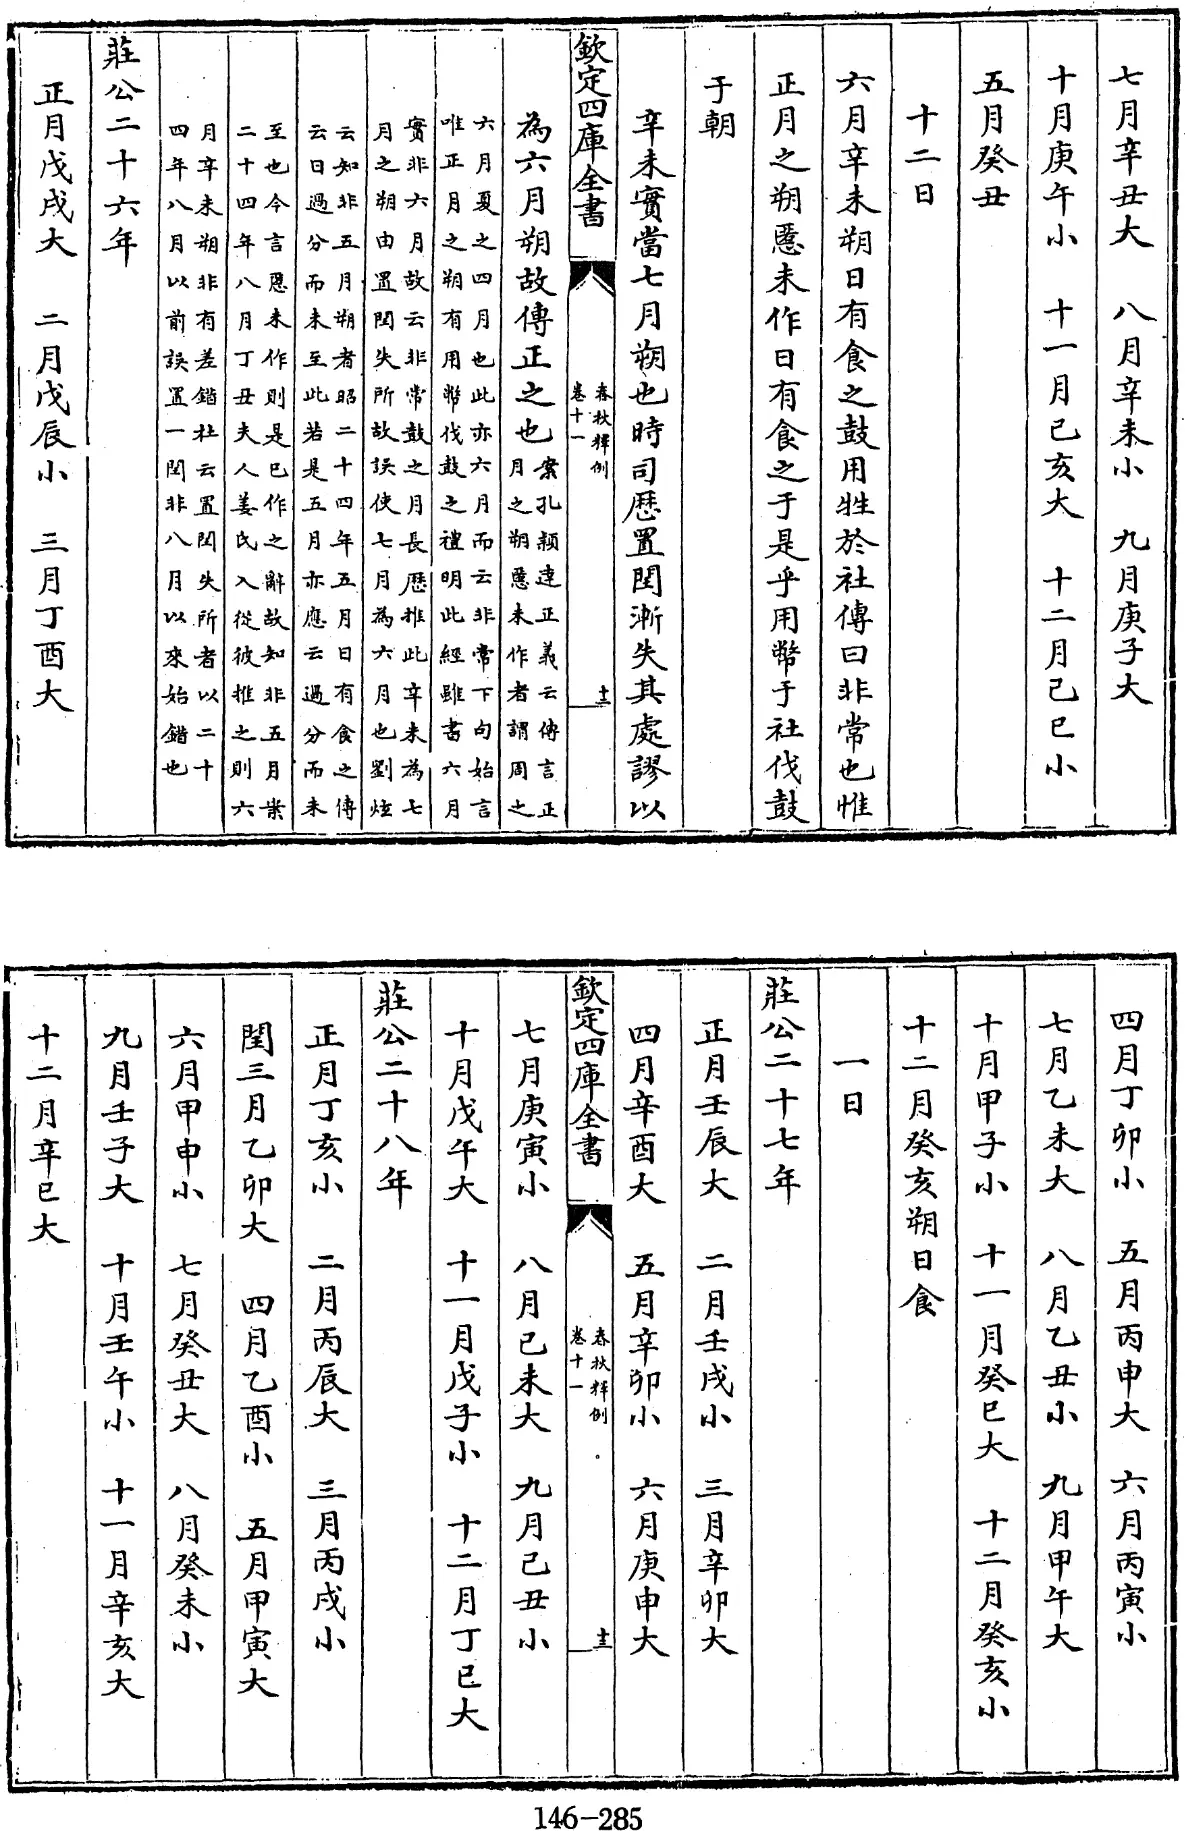 七月辛丑大　八月辛未小　九月庚子大
十月庚午小　十一月己亥大　十二月己巳小
五月癸丑
十二日
六月辛未朔日有食之鼓用牲於社傳曰非常也惟
正月之朔慝未作日有食之于是乎用幣于社伐鼓
于朝
辛未實當七月朔也時司歷置閏漸失其處謬以
欽定四庫全書
春秋釋例
卷十一
十二
為六月朔故傳正之也案孔穎達正義云傳言正
月之朔慝未作者謂周之
六月夏之四月也此亦六月而云非常下句始言
唯正月之朔有用幣伐鼓之禮明此經雖書六月
實非六月故云非常鼓之月長歷推此辛未為七
月之朔由置閏失所故誤使七月為六月也劉炫
云知非五月朔者昭二十四年五月日有食之傳
云日過分而未至此若是五月亦應云過分而未
至也今言慝未作則是已作之辭故知非五月案
二十四年八月丁丑夫人姜氏入從彼推之則六
月辛未朔非有差錯杜云置閏失所者以二十
四年八月以前誤置一閏非八月以來始錯也
莊公二十六年
正月戊戌大　二月戊辰小　三月丁酉大
四月丁卯小　五月丙申大　六月丙寅小
七月乙未大　八月乙丑小　九月甲午大
十月甲子小　十一月癸巳大　十二月癸亥小
十二月癸亥朔日食
一日
莊公二十七年
正月壬辰大　二月壬戌小　三月辛卯大
四月辛酉大　五月辛卯小　六月庚申大
欽定四庫全書
春秋釋例
卷十一
十三
七月庚寅小　八月己未大　九月己丑小
十月戊午大　十一月戊子小　十二月丁巳大
莊公二十八年
正月丁亥小　二月丙辰大　三月丙戌小
閏三月乙卯大　四月乙酉小　五月甲寅大
六月甲申小　七月癸丑大　八月癸未小
九月壬子大　十月壬午小　十一月辛亥大
十二月辛巳大
146-285